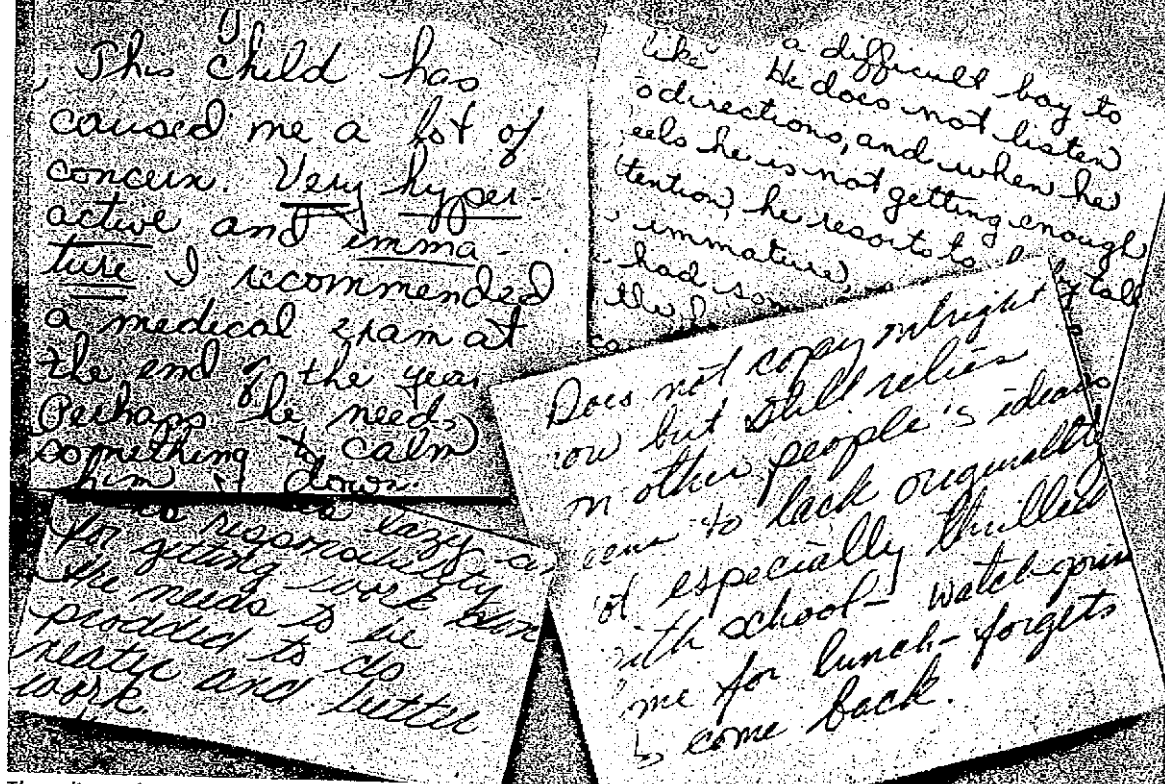 This child has
caused me a lot of
concern. Very hyper-
active and imma-
ture I recommended
a medical exam at
the end of the year
Perhaps he needs
something to calm
him down.
like a difficult boy to
He does not listen
o directions, and when he
eels he is not getting enough
tention, he resorts to talk
immature,
had
the
Does not copy outright
ow but still relies
n other people's ideas
eems to lack originality
ot especially thrilled
ith school - watch going
me for lunch - forgets
to come back.
lazy
responsibility
for getting work done
He needs to be
prodded to do
neater and better
work.